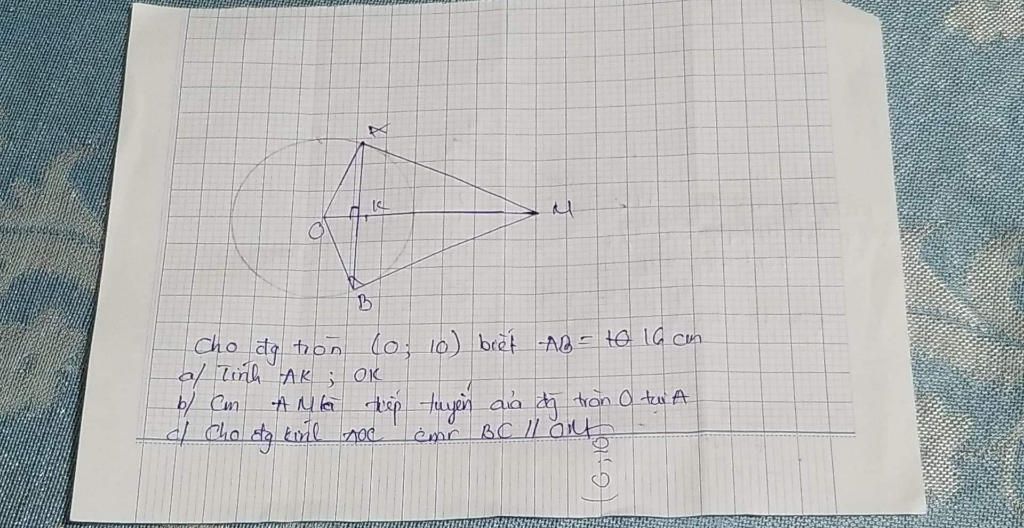 A
K
O
M
B
Cho đg tròn (O; 10) biết AB = 16 cm
a/ Tính AK ; OK
b/ Cm AM là tiếp tuyến của đg tròn O tại A
c/ Cho đg kính AOC cmr BC // OM